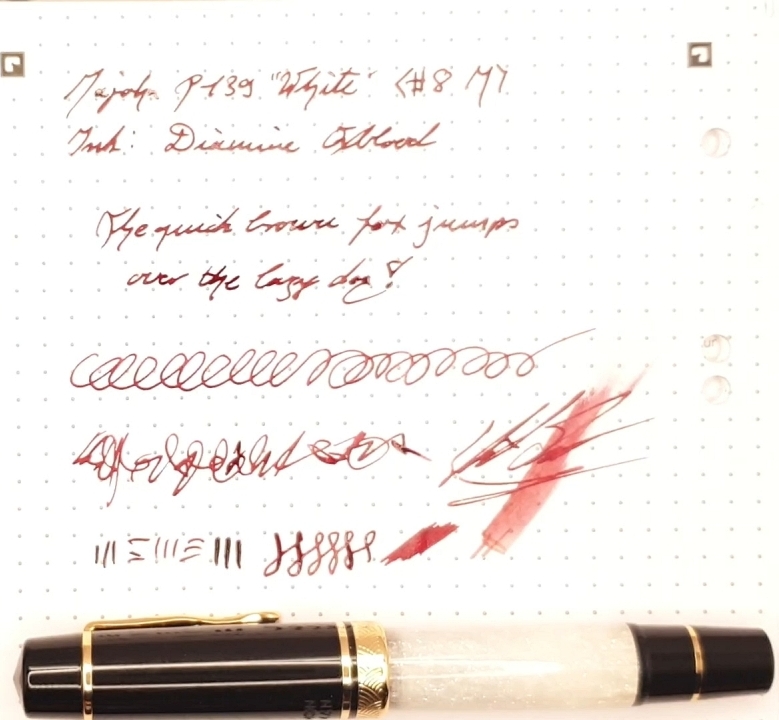 Majohn P139 "White" (#8 M)
Ink: Diamine Oxblood
The quick brown fox jumps
over the lazy dog!